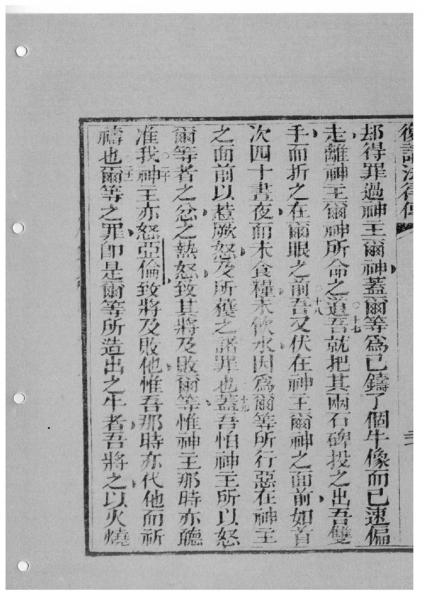 復講法律傳
却得罪過神王爾神蓋爾等爲已鑄了個牛像而已速偏
走離神王爾神所命之道十七吾就把其兩石碑投之出吾雙
手而折之在爾眼之前十八吾又伏在神王爾神之面前如首
次四十晝夜而未食糧未飲水因爲爾等所行惡在神王
之面前以惹厥怒及所獲之諸罪也十九蓋吾怕神王所以怒
爾等者之忿之熱怒致其將及敗爾等惟神王那時亦聽
准我二十神王亦怒亞倫致將及敗他惟吾那時亦代他而祈
禱也爾等之罪卽是爾等所造出之牛者吾將之以火燒